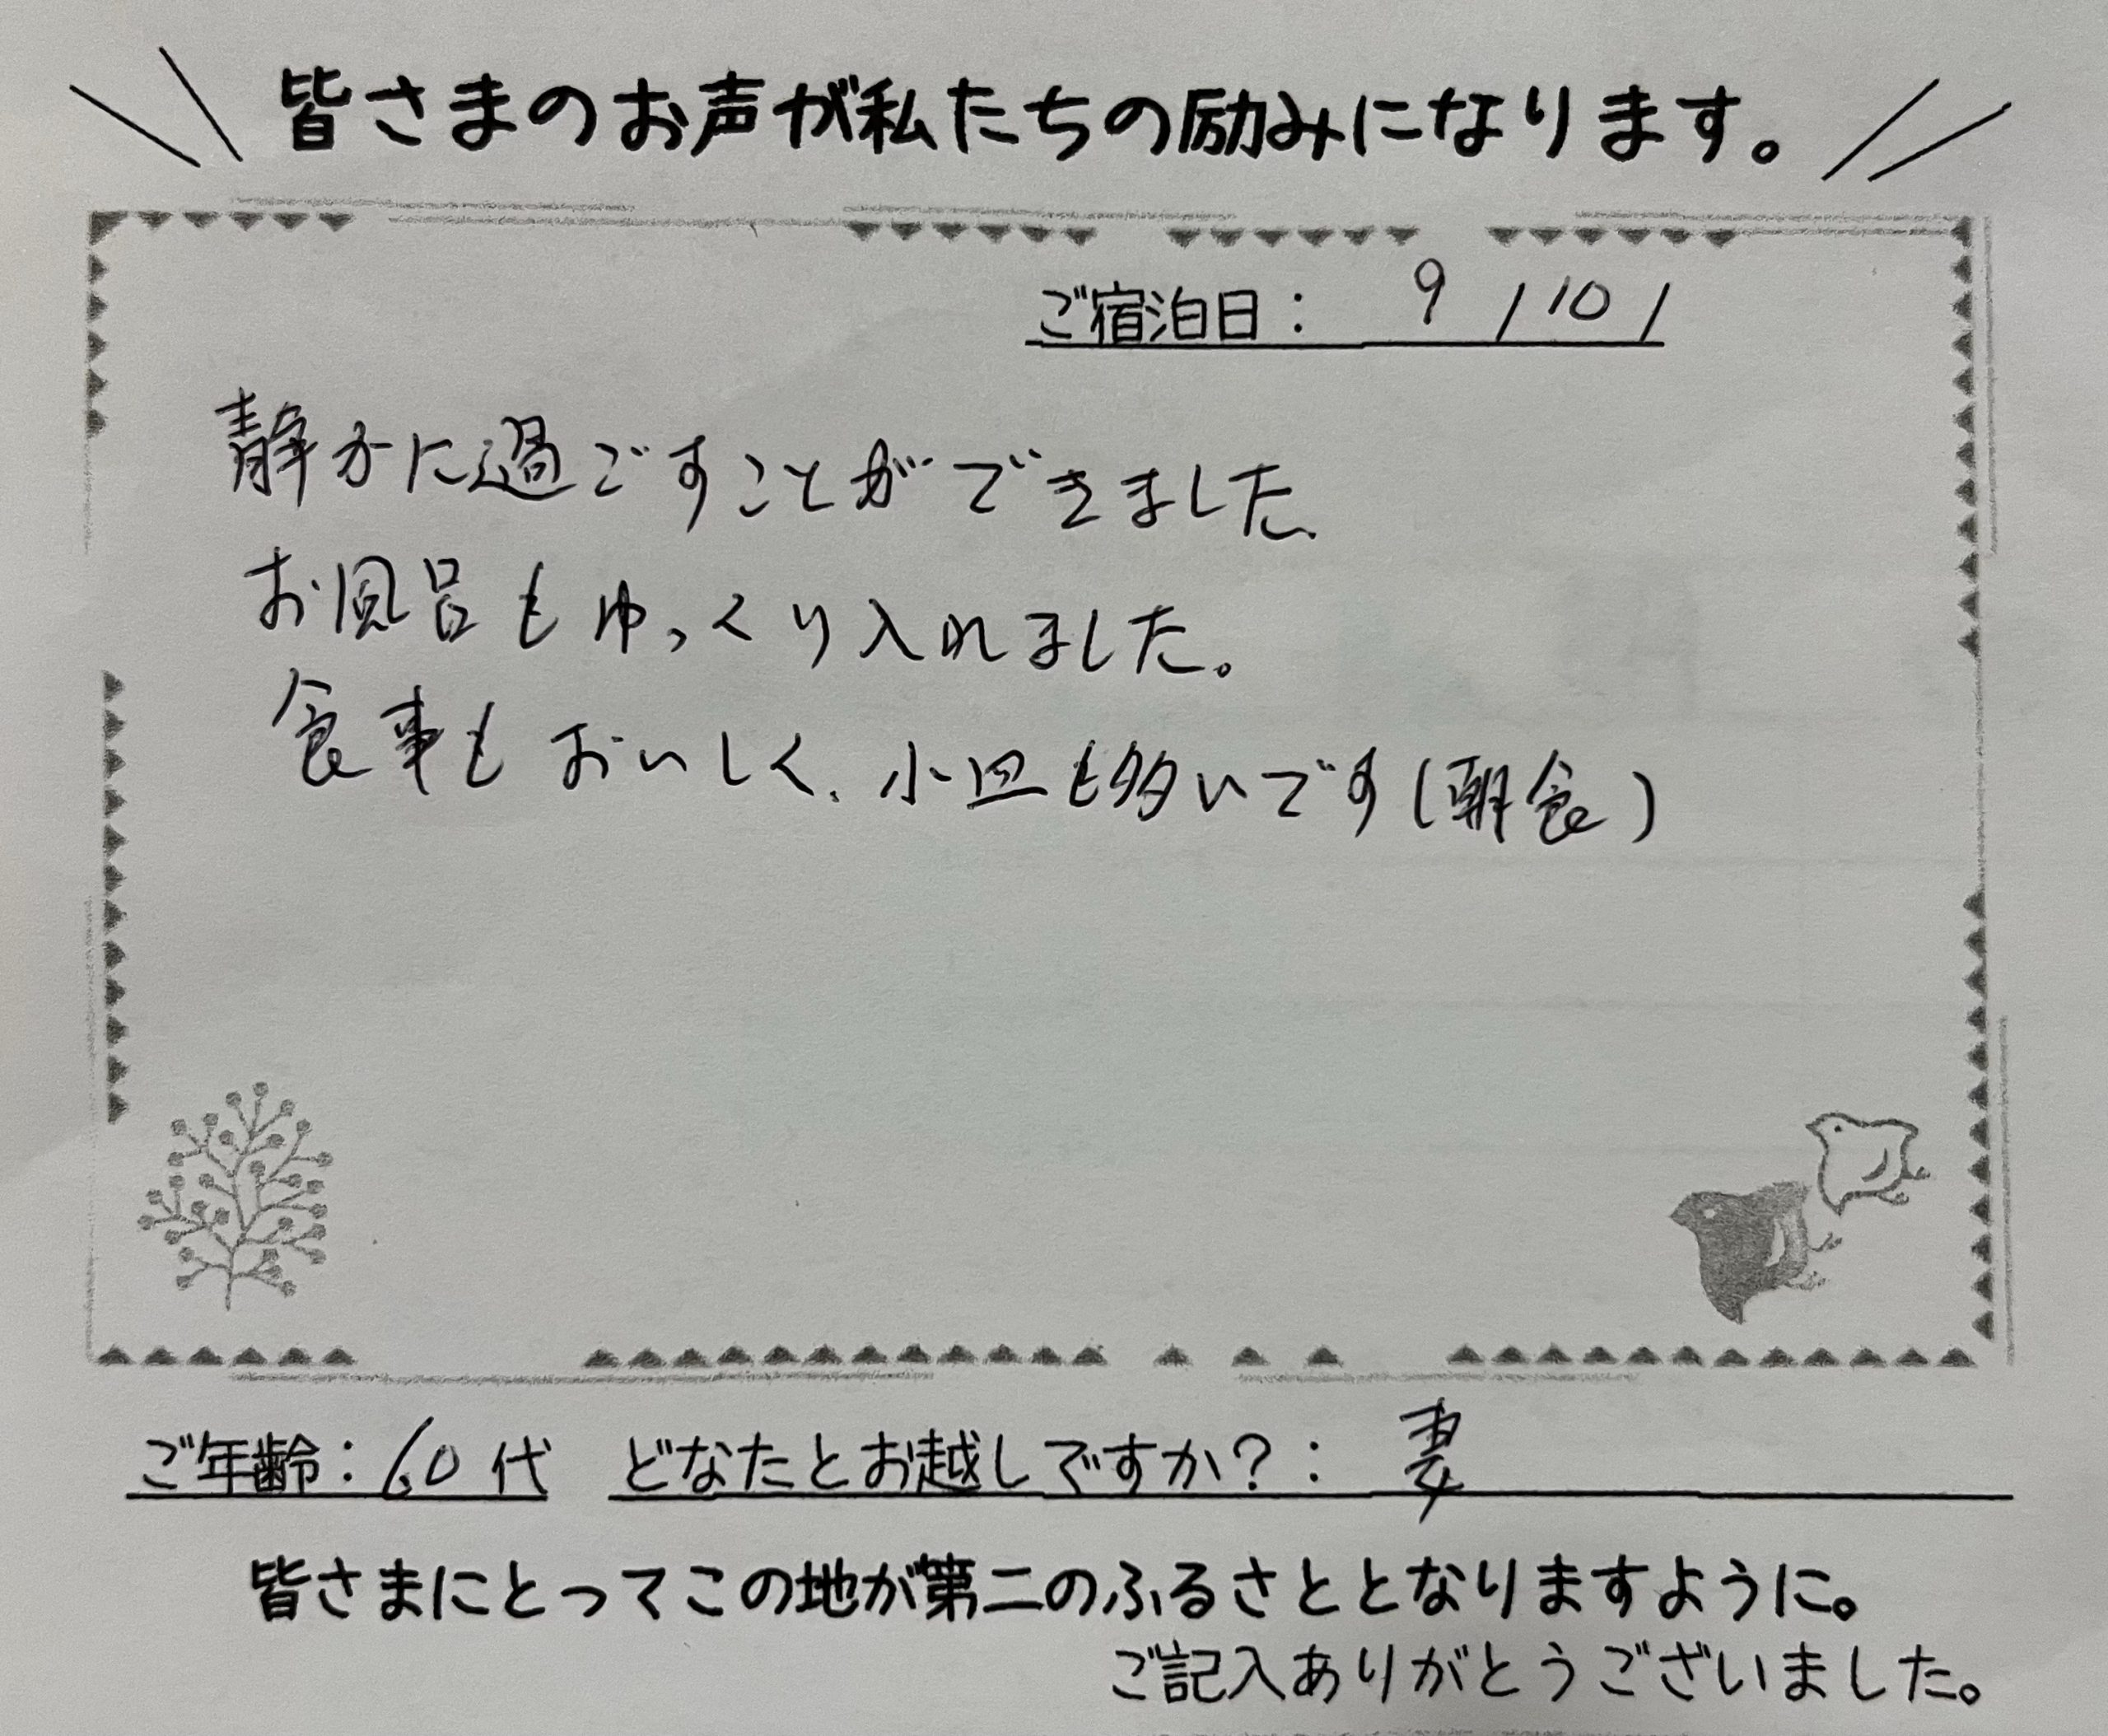 皆さまのお声が私たちの励みになります。
ご宿泊日: 9/10/
静かに過ごすことができました、
お風呂もゆっくり入れました。
食事もおいしく、小皿も多いです(朝食)
ご年齢: 60代 どなたとお越しですか?: 妻
皆さまにとってこの地が第二のふるさととなりますように。
ご記入ありがとうございました。